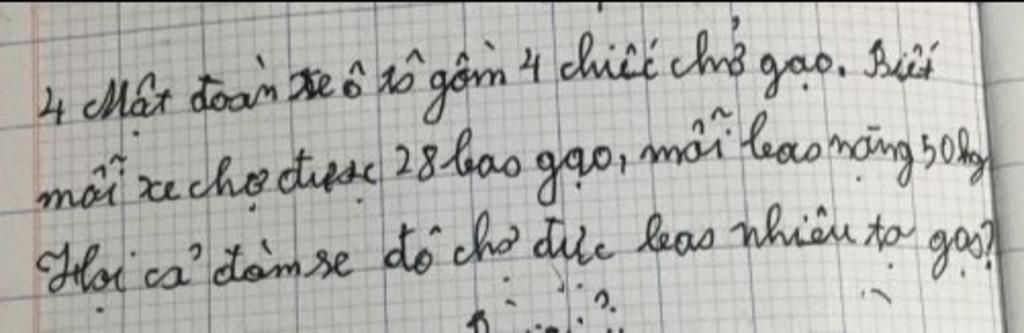 4 Một đoàn xe ô tô gồm 4 chiếc chở gạo. Biết
mỗi xe chở được 28 bao gạo, mỗi bao nặng 50kg
Hỏi cả đoàn xe đó chở được bao nhiêu tạ gạo?